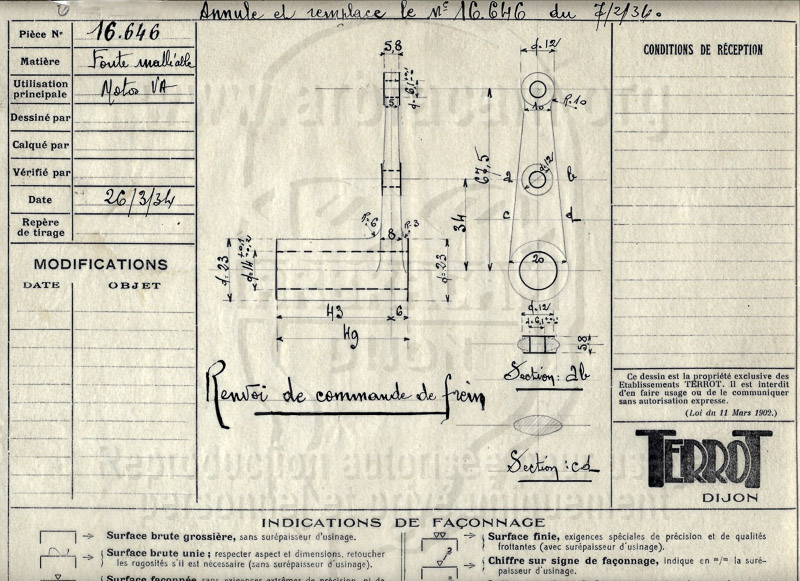 Annule et remplace le N° 16.646 du 7/2/34.
Pièce N° 16.646
Matière Fonte malléable
Utilisation principale Motos VA
Dessiné par
Calqué par
Vérifié par
Date 26/3/34
Repère de tirage
MODIFICATIONS
DATE OBJET
5,8
5
R:6
R:3
8
d:23
d:23
43
6
49
d:12
R:10
10
67,5
d:12
a
b
34
c
d
20
d:12
5,8
Section: ab
Section: cd
Renvoi de commande de frein
CONDITIONS DE RÉCEPTION
Ce dessin est la propriété exclusive des
Etablissements TERROT. Il est interdit
d'en faire usage ou de le communiquer
sans autorisation expresse.
(Loi du 11 Mars 1902.)
TERROT
DIJON
INDICATIONS DE FAÇONNAGE
Surface brute grossière, sans surépaisseur d'usinage.
Surface brute unie; respecter aspect et dimensions, retoucher
les rugosités s'il est nécessaire (sans surépaisseur d'usinage).
Surface finie, exigences spéciales de précision et de qualités
frottantes (avec surépaisseur d'usinage).
3
Chiffre sur signe de façonnage, indique en m/m la suré-
paisseur d'usinage.